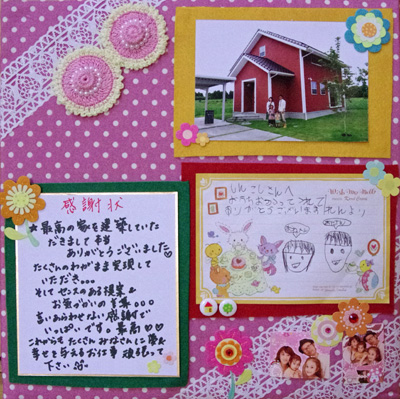 感謝状
★最高の家を建築していた
だきまして 本当
ありがとうございました♡
たくさんのわがまま実現して
いただき...
そしてセンスのある提案&
お気づかいの言葉...
言いあらわせない感謝で
いっぱいです。最高♡♡
これからもたくさんみなさんに夢&
幸せを与えるお仕事 頑張って
下さい
さんへ
ありがとうございます